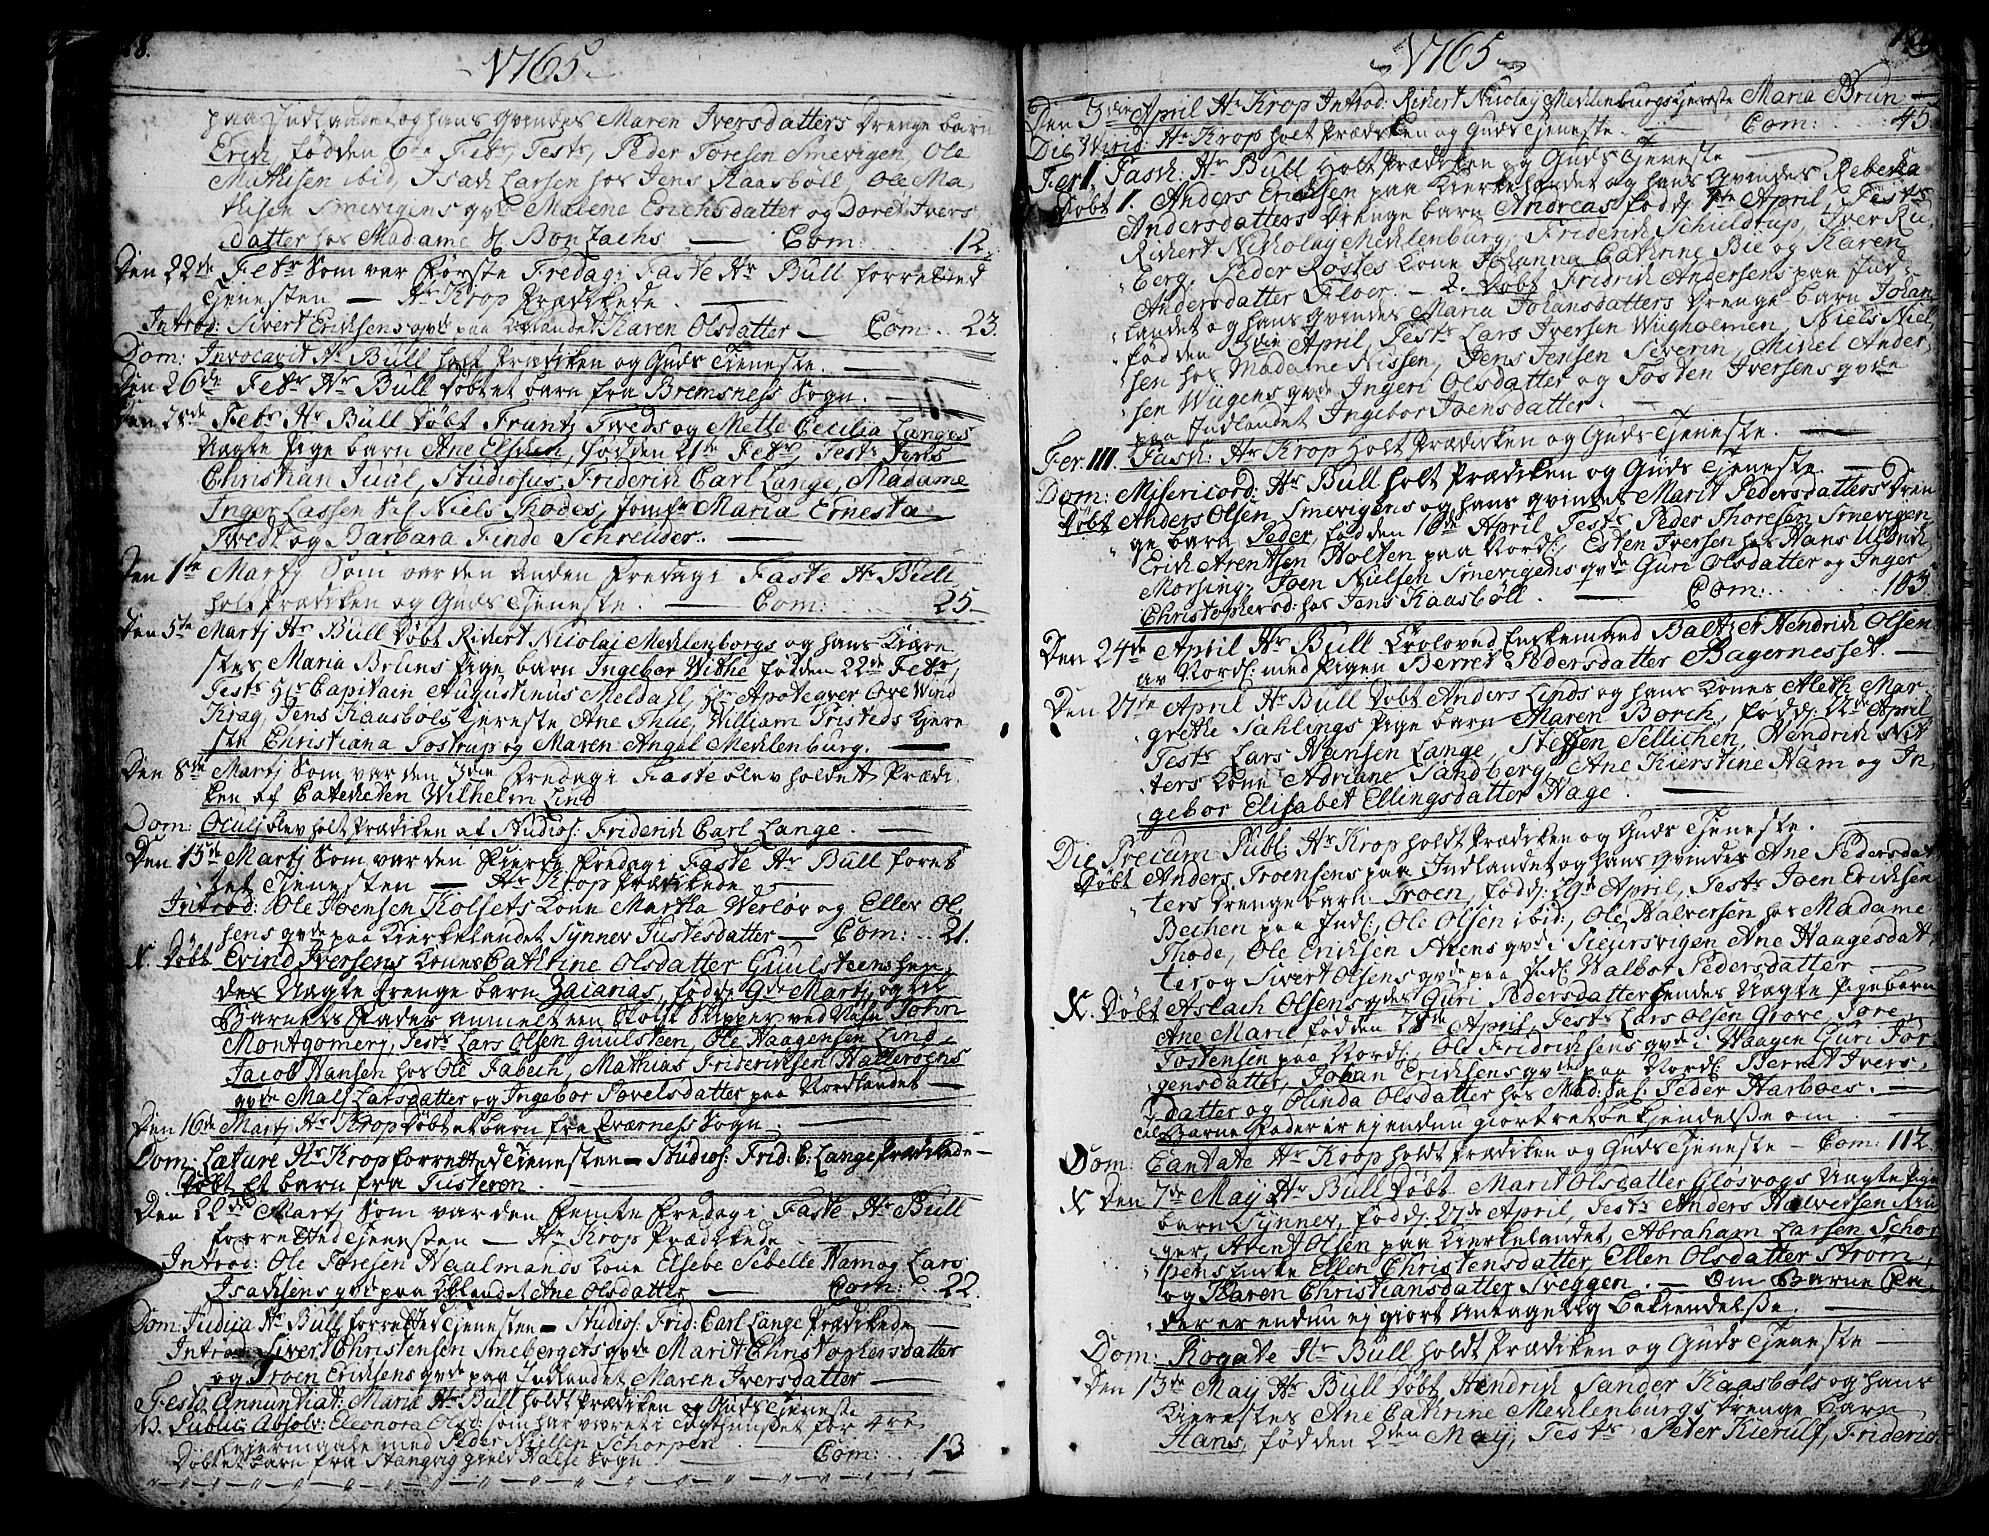 8.
1765
paa Indlandet og hans qvindes Maren Iversdatters Drenge barn
Erich, fødden 6te Febr, Test: Peder Toresen Smevigen, Ole
Mathisen ibid, Isach Larsen hos Jens Kaasbøll, Ole Ma-
thisen Smevigens qvde Malene Erichsdatter og Doret Ivers
datter hos Madame Sl. Bonzachs — Com: 12.
Den 22de Febr Som var Første Fredag i Faste Hr Bull forretted
Tjenesten — Hr Krop Prædikede. —
Introd: Sivert Erichsens qvde paa Kirkelandet Karen Olsdatter — Com: 23.
Dom: Invocavit Hr Bull holt Prædiken og Guds Tjeneste. —
Den 26de Febr Hr Bull Døbt et barn fra Bremsness Sogn. —
Den 28de Febr Hr Bull Døbt Frantz Tweds og Mette Cecilia Langes
Uægte Pige barn Ane Elsden, fødden 21de Febr, Test: Jens
Christian Juul, Studiosus Friderich Carl Lange, Madame
Inger Lassen Sal Niels Thodes, Jomfr Maria Ernesta
Twedt og Barbara Finde Schreüder. —
Den 1te Martj Som var den Anden Fredag i Faste Hr Bull
holt Prædiken og Guds Tjeneste. — Com: 25.
Den 5te Martj Hr Bull Døbt Richert Nicolai Mechlenborgs og hans Kiære
stes Maria Bruns Pige barn Ingebor Withe fødden 22de Febr,
Test: Hr Capitain Augustinus Meldahl, Hr Apoteqver Ove Wind
Krag, Jens Kaasbøls Kjereste Ane Thue, William Fristeds Kjere
ste Christiana Tostrup og Maren Angel Mechlenburg. —
Den 8de Martj Som var den 3die Fredag i Faste blev holdet Prædi
ken af Catecheten Wilhelm Lind
Dom: Oculj blev holt Prædiken af Studios: Friderich Carl Lange. —
Den 15de Martj Som var den Fierde Fredag i Faste Hr Bull foret
tet Tjenesten — Hr Krop Prædikede —
Introd: Ole Joensen Kolsets Kone Martha Werløv og Eller Ol-
sens qvde paa Kierkelandet Synnev Justesdatter — Com: 21.
X. Døbt Evind Iversens Kones Cathrine Olsdatter Guulsteens hen-
des Uægte Drenge barn Zaianas, fødd: 9de Martj, og til
Barnets Fader anmelt een Skotsk Skipper ved Nafn John
Montgomerj, Test: Lars Olsen Guulsteen, Ole Haagensen Lind,
Jacob Hansen hos Ole Fabech, Mathias Friderichsen Halteroens
qvde Mali Larsdatter og Ingebor Povelsdatter paa Nordlandet —
Den 16de Martj Hr Krop Døbt et barn fra Qværness Sogn —
Dom: Lætare Hr Krop forretted Tjenesten — Studios: Frid: C: Lange Prædikede —
Døbt Et barn fra Tusteren. —
Den 22de Martj Som var den Femte Fredag i Faste Hr Bull
forretted Tjenesten — Hr Krop Prædikede —
Introd: Ole Toresen Haalmands Kone Elsebe Sebelle Ham og Lars
Isachsens qvde paa Kkelandet Ane Olsdatter — Com: 22.
Dom: Judica Hr Bull forretted Tjenesten — Studios: Frid: Carl Lange Prædikede —
Introd: Sivert Christensen Anebergets qvde Marit Christophersdatter
og Troen Erichsens qvde paa Indlandet Maren Iversdatter —
Festo Annuntiat: Mariæ Hr Bull holdt Prædiken og Guds Tjeneste
Public: Absolv: Eleonora Olsd: som har været i Tugthuuset for 4re
Leiermaale med Peder Nielsen Schorpen. —
Døbt et barn fra Stangvig gield Halse Sogn. — Com: 13
1765
Den 3die April Hr Krop Introd: Richert Nicolay Mechlenburgs Kjereste Maria Brun —
Die Virid: Hr Krop holt Prædicken og Guds Tjeneste. — Com: 45.
Fer I. Pasch: Hr Bull Holt Prædicken og Guds Tjeneste —
Døbt 1. Anders Erichsen paa Kierkelandet og hans qvindes Rebecka
Andersdatters Drenge barn Andreas fødd: 1te April, Test:
Richert Nickolay Mechlenburg, Friderich Schildrup, Iver Ru
Berg, Peder Røstes Kone Johanna Cathrine Bie og Karen
Andersdatter Floer. — 2. Døbt Fridrich Andersens paa Ind-
landet og hans qvindes Maria Johansdatters Drenge barn Johan
fødden 3die April, Test: Lars Iversen Wiigholmen, Niels Niel-
sen hos Madame Nissen, Jens Jensen Severin, Michel Ander-
sen Wiigens qvde Ingeri Olsdatter og Tosten Iversens qvde
paa Indlandet Ingebor Joensdatter. —
Fer. III. Pasch: Hr Krop holt Prædicken og Guds Tjeneste. —
Dom: Misericord: Hr Bull holt Prædiken og Guds Tjeneste —
Døbt Anders Olsen Smevigens og hans qvindes Marit Pedersdatters Dren
ge barn Peder, fødden 16de April Test: Peder Thoresen Smevigen,
Erich Arentsen Holten paa Nordl:, Esten Iversen hos Hans Ulrich
Morsing, Joen Nielsen Smevigens qvde Guri Olsdatter og Inger
Christophersd: hos Jens Kaasbøll. — Com: 103.
Den 24de April Hr Bull Troloved Enkemand Baltzer Hendrich Olsen
av Nordl: med Pigen Berret Pedersdatter Bagernesset. —
Den 27de April Hr Bull Døbt Anders Linds og hans Kones Aleth Mar-
grethe Sahlings Pige barn Maren Borch, fødd: 22de April
Test: Lars Hansen Lange, Steffen Sellichen, Hendrich Nit
ters Kone Adriane Sandberg, Ane Kierstine Ham og In-
gebor Elisabet Ellingsdatter Hage. —
Die Precum Publ: Hr Krop holdt Prædicken og Guds Tjeneste. —
Døbt Anders Troensens paa Indlandet og hans qvindes Ane Pedersdat
ters Drenge barn Troen, fødd: 29de April, Test: Joen Erichsen
Bechen paa Indl:, Ole Olsen ibid:, Ole Halversen hos Madame
Thode, Ole Erichsen Aasens qvde i Sieursvigen Ane Haagesdat
ter og Sivert Olsens qvde paa Indl: Walbor Pedersdatter —
X. Døbt Aslach Olsens qvdes Guri Pedersdatter hendes Uægte Pige barn
Ane Marie fødden 28de April, Test: Lars Olsen Grove, Tore
Tostensen paa Nordl:, Ole Fridrichsens qvde i Waagen Guri Tor-
gensdatter, Johan Erichsens qvde paa Nordl: Berret Ivers-
datter og Olinda Olsdatter hos Mad: Sal: Peder Harboes. —
til Barne Fader er ej endnu giort rette bekjendelse om —
Dom: Cantate Hr Krop holdt Prædiken og Guds Tjeneste — Com: 112.
X Den 7de May Hr Bull Døbt Marit Olsdatter Gløsvogs Uægte Pige
barn Synnev, fødd: 27de April, Test: Anders Halversen Kru
ger, Arent Olsen paa Kierkelandet, Abraham Larsen Schor-
pens Enke Ellen Christensdatter, Ellen Olsdatter Strøm,
og Karen Christiansdatter Sveggen. — Om Barne Fa-
der er endnu ej giort antagelig bekiendelse. —
Dom: Rogate Hr Bull holdt Prædiken og Guds Tjeneste —
Den 13de May Hr Bull Døbt Hendrich Sander Kaasbøls og hans
Kierestes Ane Cathrine Mechlenburgs Drenge barn
Hans, fødden 2den May, Test: Peter Kierulf, Frideric